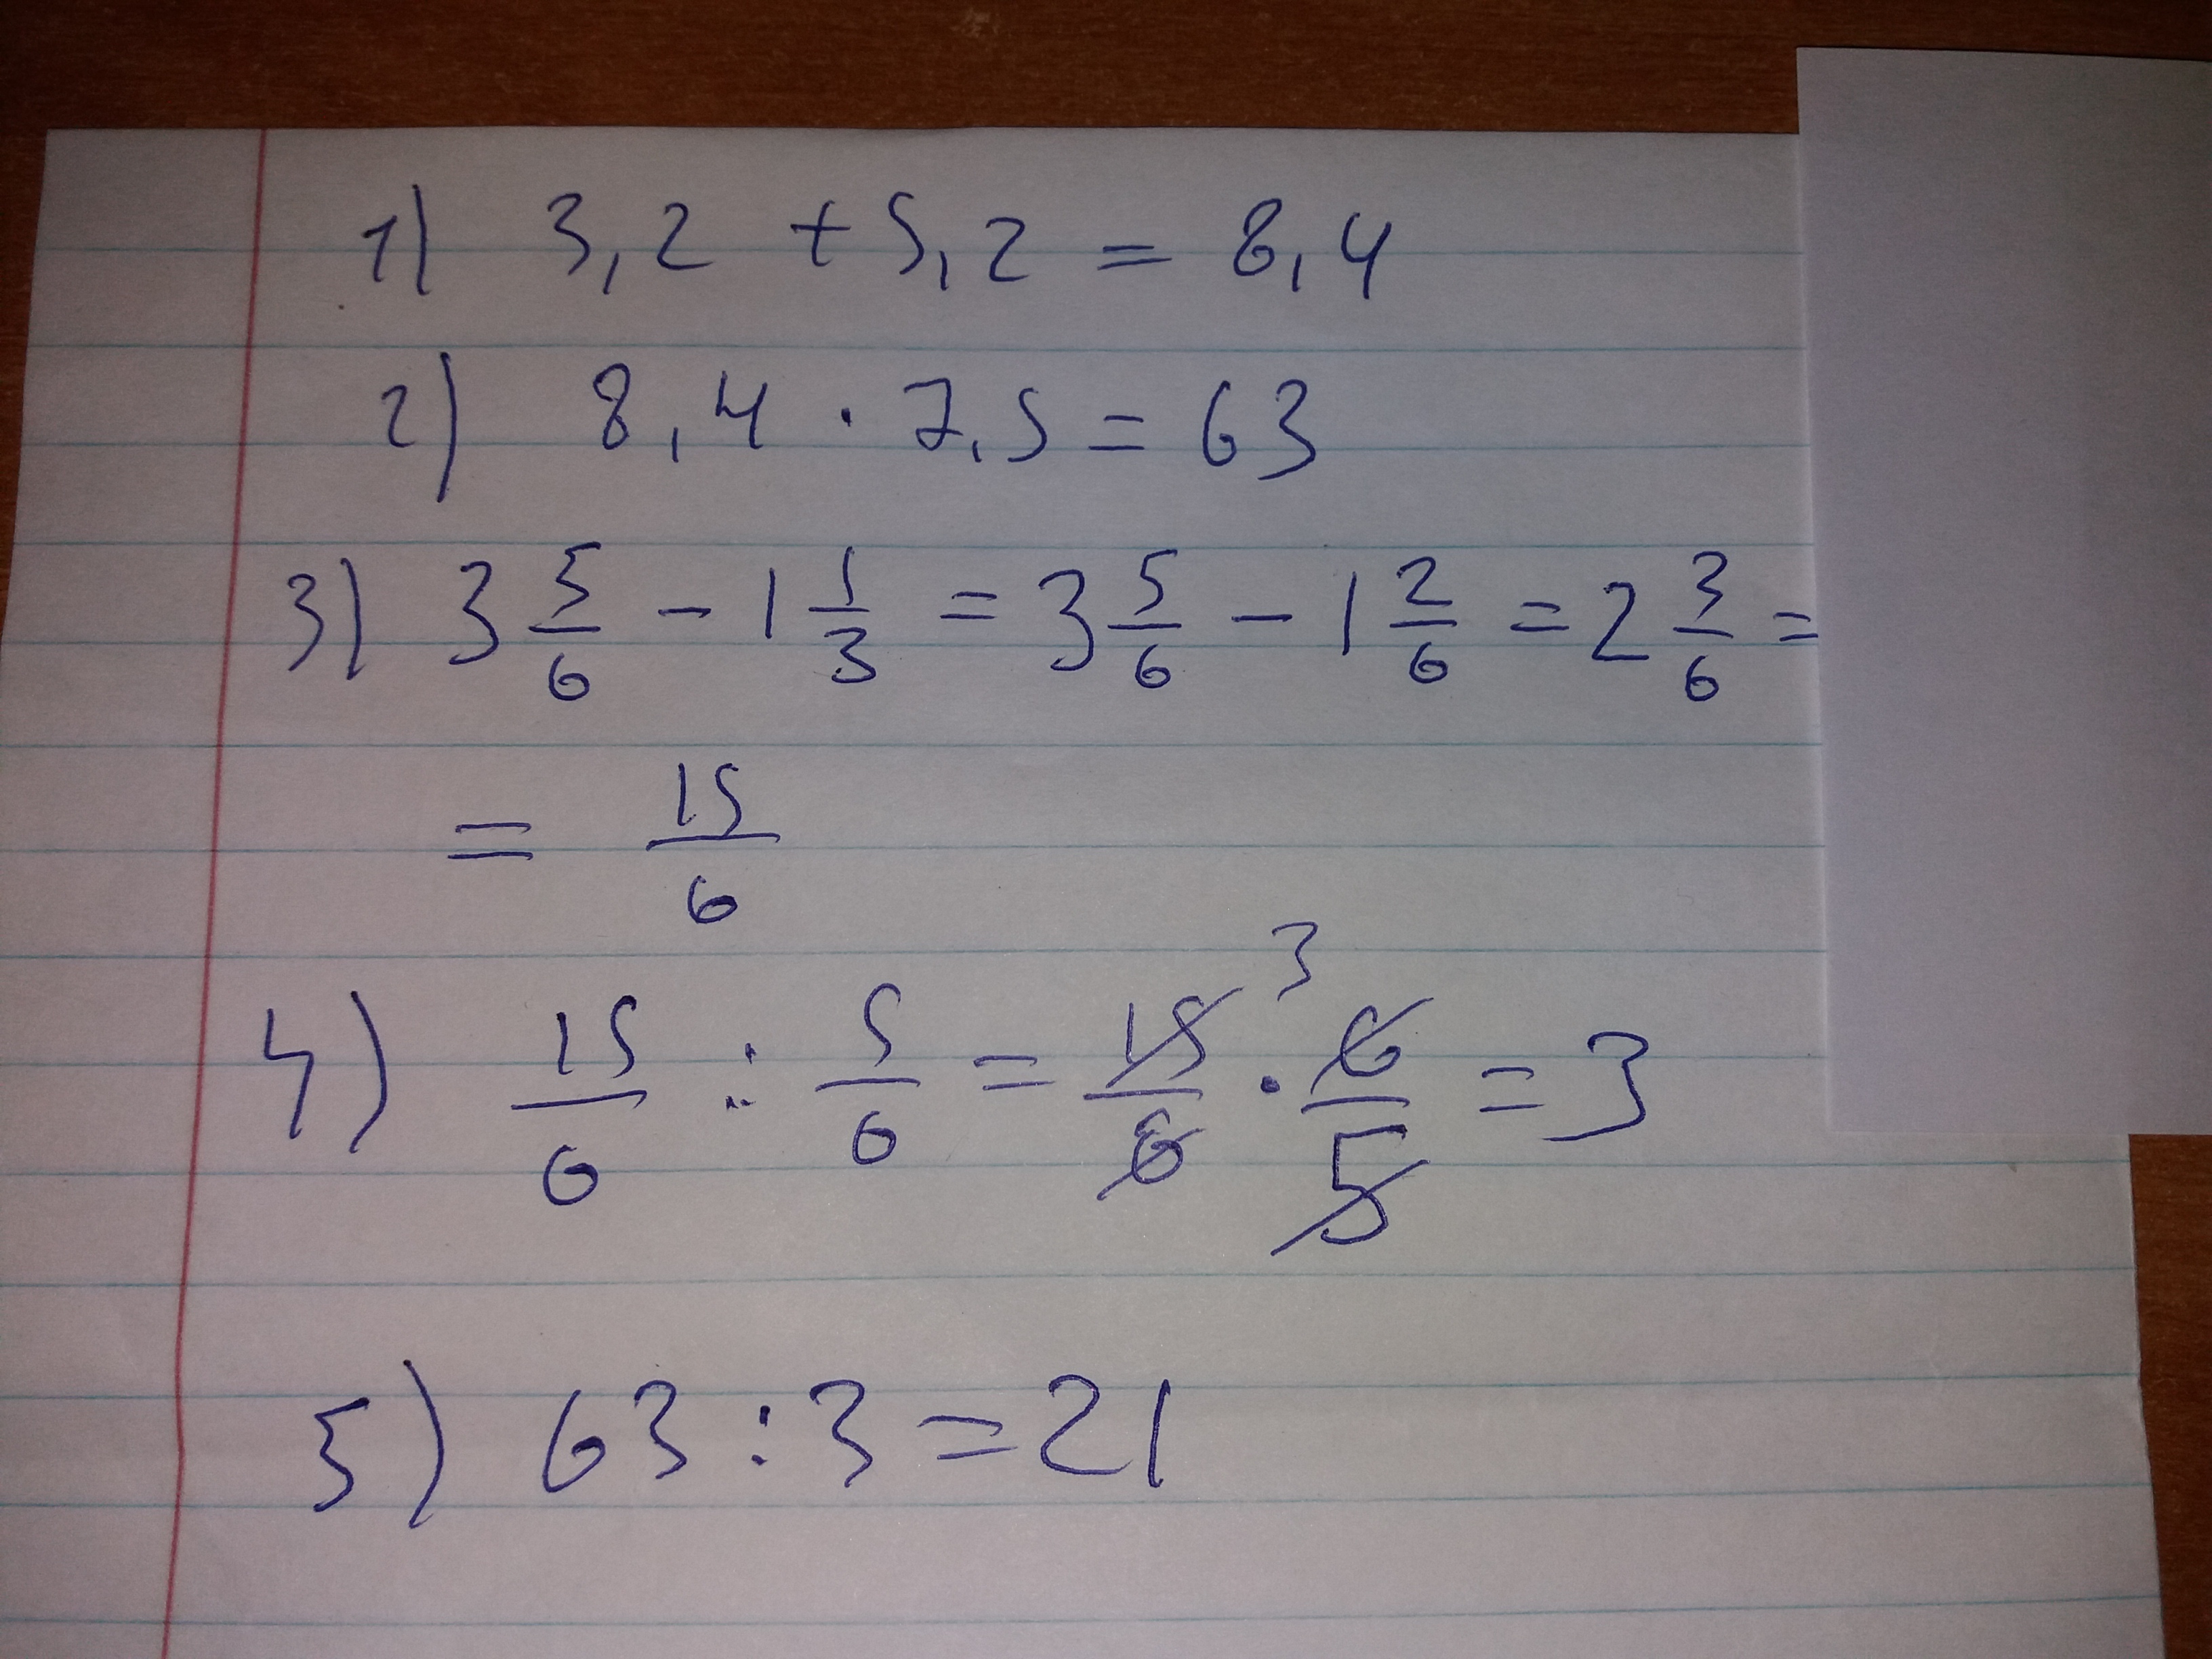 1) 3,2 + 5,2 = 8,4
2) 8,4 · 7,5 = 63
3) 3 5/6 - 1 1/3 = 3 5/6 - 1 2/6 = 2 3/6 =
= 15/6
4) 15/6 : 5/6 = 15/6 3 · 6/5 = 3
5) 63 : 3 = 21